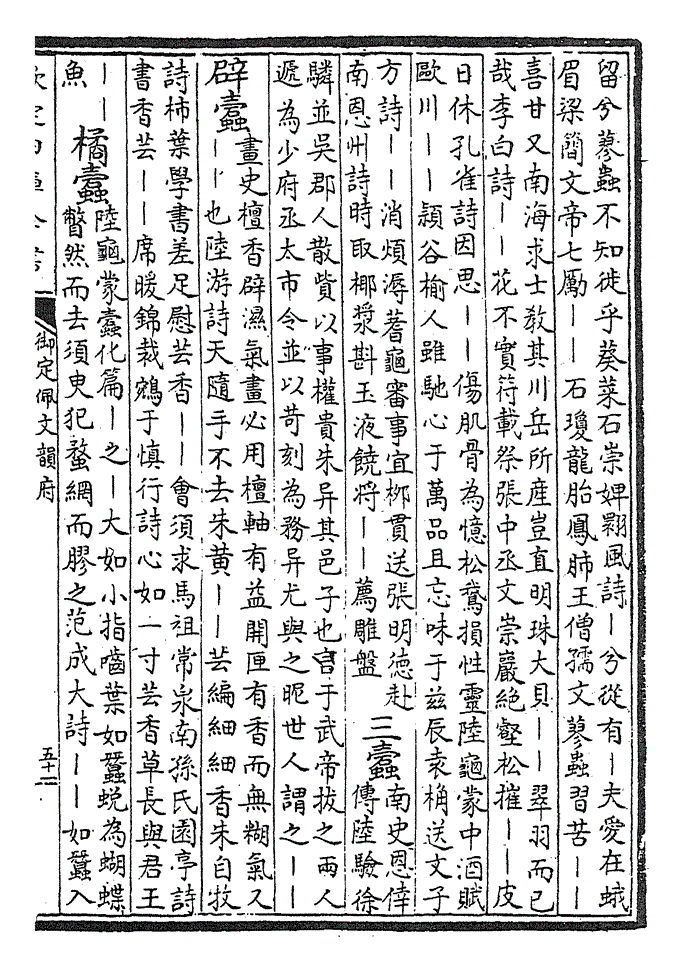 留兮蓼蟲不知徙乎葵菜石崇婢翾風詩丨兮從有丨夫愛在蛾
眉梁簡文帝七勵丨丨石瓊龍胎鳳肺王僧孺文蓼蟲習苦丨丨
喜甘又南海求士教其川岳所産豈直明珠大貝丨丨翠羽而已
哉李白詩丨丨花不實符載祭張中丞文崇巖絶壑松摧丨丨皮
日休孔雀詩因思丨丨傷肌骨為憶松鵞損性靈陸龜蒙中酒賦
歐川丨丨潁谷榆人雖馳心于萬品且忘味于兹辰袁桷送文子
方詩丨丨消煩溽蓍龜審事宜栁貫送張明徳赴
南恩州詩時取椰漿斟玉液饒將丨丨薦雕盤
三蠧
南史恩倖
傳陸驗徐
驎並吳郡人散貲以事權貴朱异其邑子也言于武帝拔之兩人
遞為少府丞太市令並以苛刻為務异尤與之昵世人謂之丨丨
辟蠧
畫史檀香辟濕氣畫必用檀軸有益開匣有香而無糊氣又
丨丨也陸游詩天隨手不去朱黄丨丨芸編細細香朱自牧
詩柿葉學書差足慰芸香丨丨會須求馬祖常泉南孫氏園亭詩
書香芸丨丨席暖錦裁鵷于慎行詩心如一寸芸香草長與君王
丨丨
魚
橘蠧
陸龜蒙蠧化篇丨之丨大如小指嚙葉如蠶蛻為蝴蝶
瞥然而去須臾犯蝥網而膠之范成大詩丨丨如蠶入
欽定四庫全書
御定佩文韻府
五十二